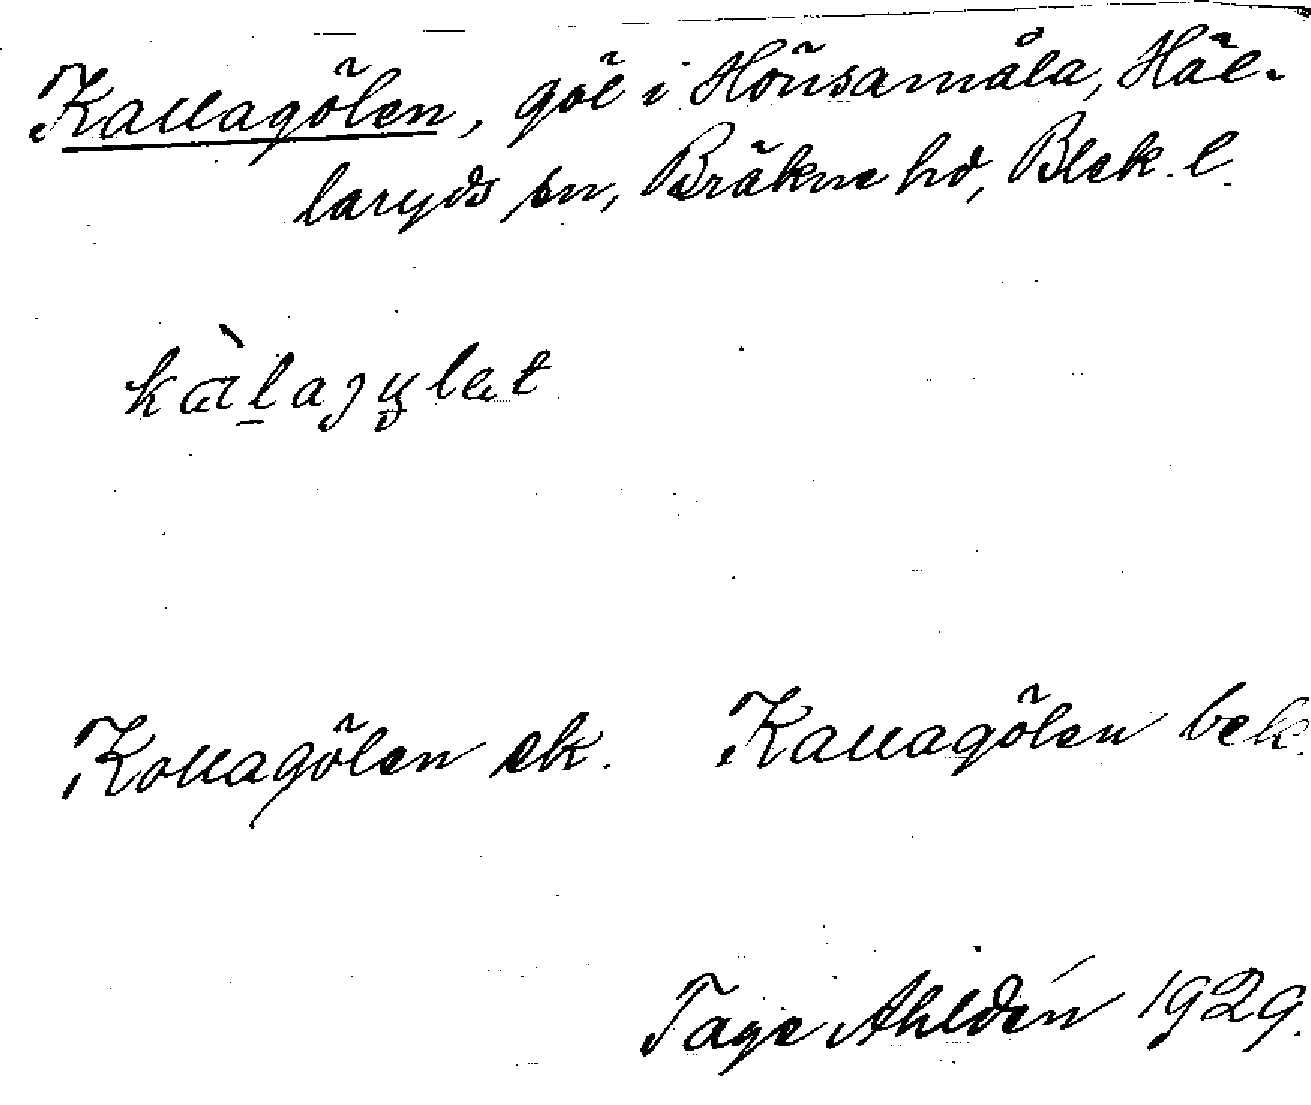 Kallagölen, göl i Hönsamåla, Häl-
laryds sn, Bräkne hd, Blek. l.
kɑ̀l̠aɟylət
Kollagölen ek. Kallagölen bek.
Tage Ahldén 1929.